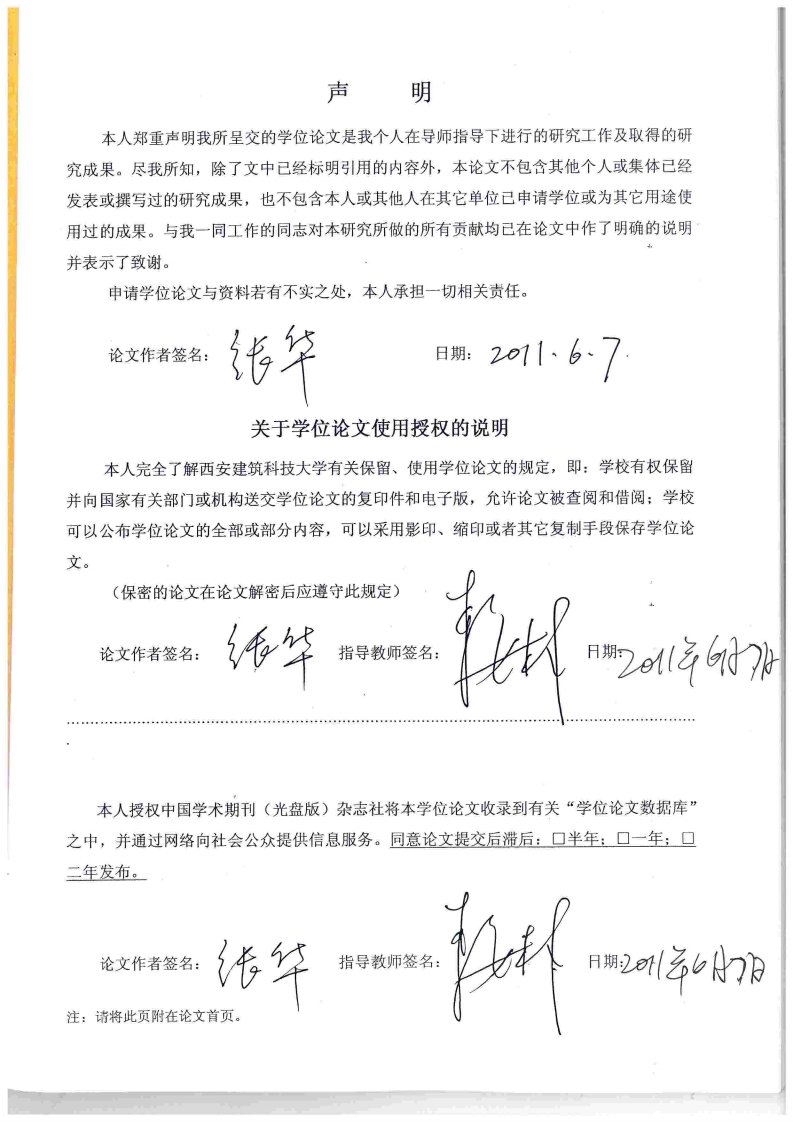 声 明
本人郑重声明我所呈交的学位论文是我个人在导师指导下进行的研究工作及取得的研
究成果。尽我所知，除了文中已经标明引用的内容外，本论文不包含其他个人或集体已经
发表或撰写过的研究成果，也不包含本人或其他人在其它单位已申请学位或为其它用途使
用过的成果。与我一同工作的同志对本研究所做的所有贡献均已在论文中作了明确的说明
并表示了致谢。
申请学位论文与资料若有不实之处，本人承担一切相关责任。
论文作者签名：张华 日期：2011.6.7.
关于学位论文使用授权的说明
本人完全了解西安建筑科技大学有关保留、使用学位论文的规定，即：学校有权保留
并向国家有关部门或机构送交学位论文的复印件和电子版，允许论文被查阅和借阅；学校
可以公布学位论文的全部或部分内容，可以采用影印、缩印或者其它复制手段保存学位论
文。
（保密的论文在论文解密后应遵守此规定）
论文作者签名：张华 指导教师签名： 日期：2011年6月7日
本人授权中国学术期刊（光盘版）杂志社将本学位论文收录到有关“学位论文数据库”
之中，并通过网络向社会公众提供信息服务。同意论文提交后滞后：□半年；□一年；□
二年发布。
论文作者签名：张华 指导教师签名： 日期：2011年6月7日
注：请将此页附在论文首页。